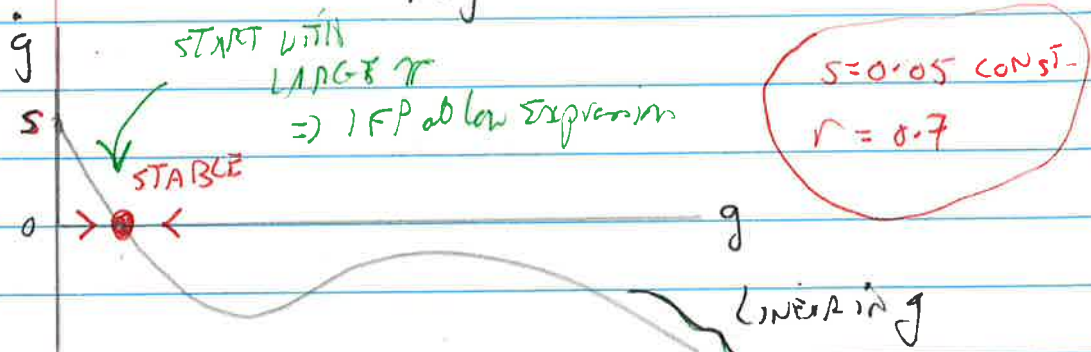 ġ
START WITH
LARGE r
=> 1 FP at low Expression
S
STABLE
0
g
s=0.05 CONST.
r = 0.7
LINEAR IN g